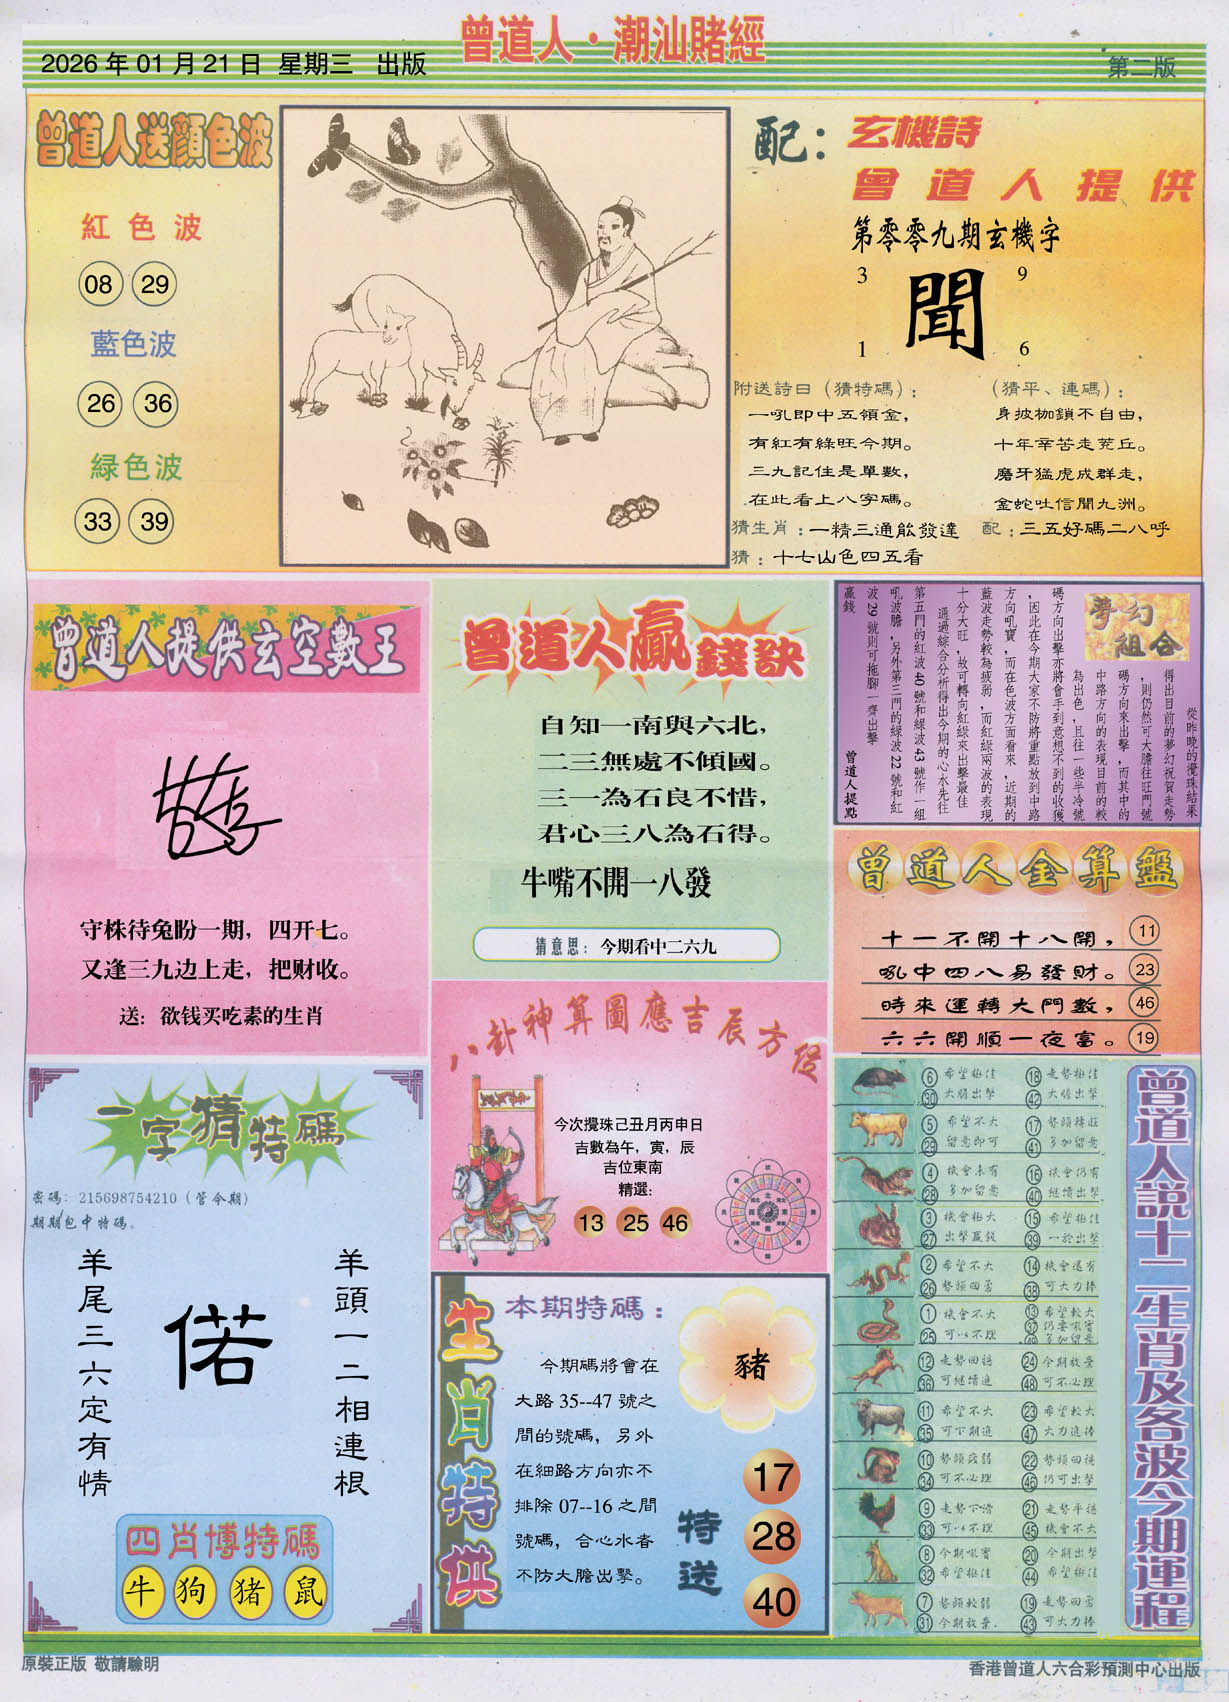 曾道人·潮汕賭經
2026年01月21日 星期三 出版
第二版
曾道人送顔色波
紅色波
08 29
藍色波
26 36
緑色波
33 39
配:玄機詩
曾道人提供
第零零九期玄機字
3 9
聞
1 6
附送詩曰(猜特碼):
一吼即中五領金,
有紅有綠旺今期。
三九記住是單數,
在此看上八字碼。
(猜平、連碼):
身披枷鎖不自由,
十年辛苦走荒丘。
磨牙猛虎成群走,
金蛇吐信聞九洲。
猜生肖:一精三通能發達
配:三五好碼二八呼
猜:十七山色四五看
曾道人提供玄空數王
守株待兔盼一期,四开七。
又逢三九边上走,把财收。
送:欲钱买吃素的生肖
曾道人贏錢訣
自知一南與六北,
二三無處不傾國。
三一為石良不惜,
君心三八為石得。
牛嘴不開一八發
猜意思:今期看中二六九
夢幻組合
從昨晚的攪珠結果
得出目前的夢幻祝賀走勢
,則仍然可大膽往旺門號
碼方向來出擊,而其中的
中路方向的表現目前的較
為出色,且往一些半冷號
碼方向出擊亦將會手到意想不到的收獲
,因此在今期大家不防將重點放到中路
方向吼寶,而在色波方面看來,近期的
藍波走勢較為疲弱,而紅綠兩波的表現
十分大旺,故可轉向紅綠來出擊最佳
通過綜合分析得出今期的心水先往
第五門的紅波40號和緑波43號作一組
吼波膽,另外第三門的綠波22號和紅
波29號則可拖腳一齊出擊
贏錢
曾道人提點
曾道人金算盤
十一不開十八開, 11
吼中四八易發財。 23
時來運轉大門數, 46
六六開順一夜富。 19
八卦神算圖應吉辰方位
今次攪珠己丑月丙申日
吉數為午,寅,辰
吉位東南
精選:
13 25 46
一字猜特碼
密碼:215698754210(管今期)
期期包中特碼。
羊頭一二相連根
偌
羊尾三六定有情
四肖博特碼
牛 狗 猪 鼠
生肖特供
本期特碼:
今期碼將會在
大路35--47號之
間的號碼,另外
在細路方向亦不
排除07--16之間
號碼,合心水者
不防大膽出擊。
豬
特送
17
28
40
曾道人説十二生肖及各波今期運程
6 希望極佳 18 走勢極佳
30 大膽出擊 42 大膽出擊
5 希望不大 17 勢頭轉旺
29 留意即可 41 多加留意
4 機會未有 16 機會仍有
28 多加留意 40 繼續出擊
3 機會極大 15 希望極佳
27 出擊贏錢 39 一於出擊
2 希望不大 14 機會還有
26 勢頭回勇 38 可大力捧
1 機會不大 13 希望較大
25 可以不理 37 仍要吼實
多加留意
12 走勢回穩 24 今期放棄
36 可繼續進 48 可不必理
11 希望不大 23 希望較大
35 可下期進 47 大力進捧
10 勢頭疲弱 22 勢頭回穩
34 可不必理 46 仍可出擊
9 走勢下滑 21 走勢平穩
33 可以不理 45 機會不大
8 今期吼實 20 今期出擊
32 希望極佳 44 希望極佳
7 勢頭較弱 19 走勢回勇
31 今期放棄. 43 可大力捧
原裝正版 敬請驗明
香港曾道人六合彩預測中心出版